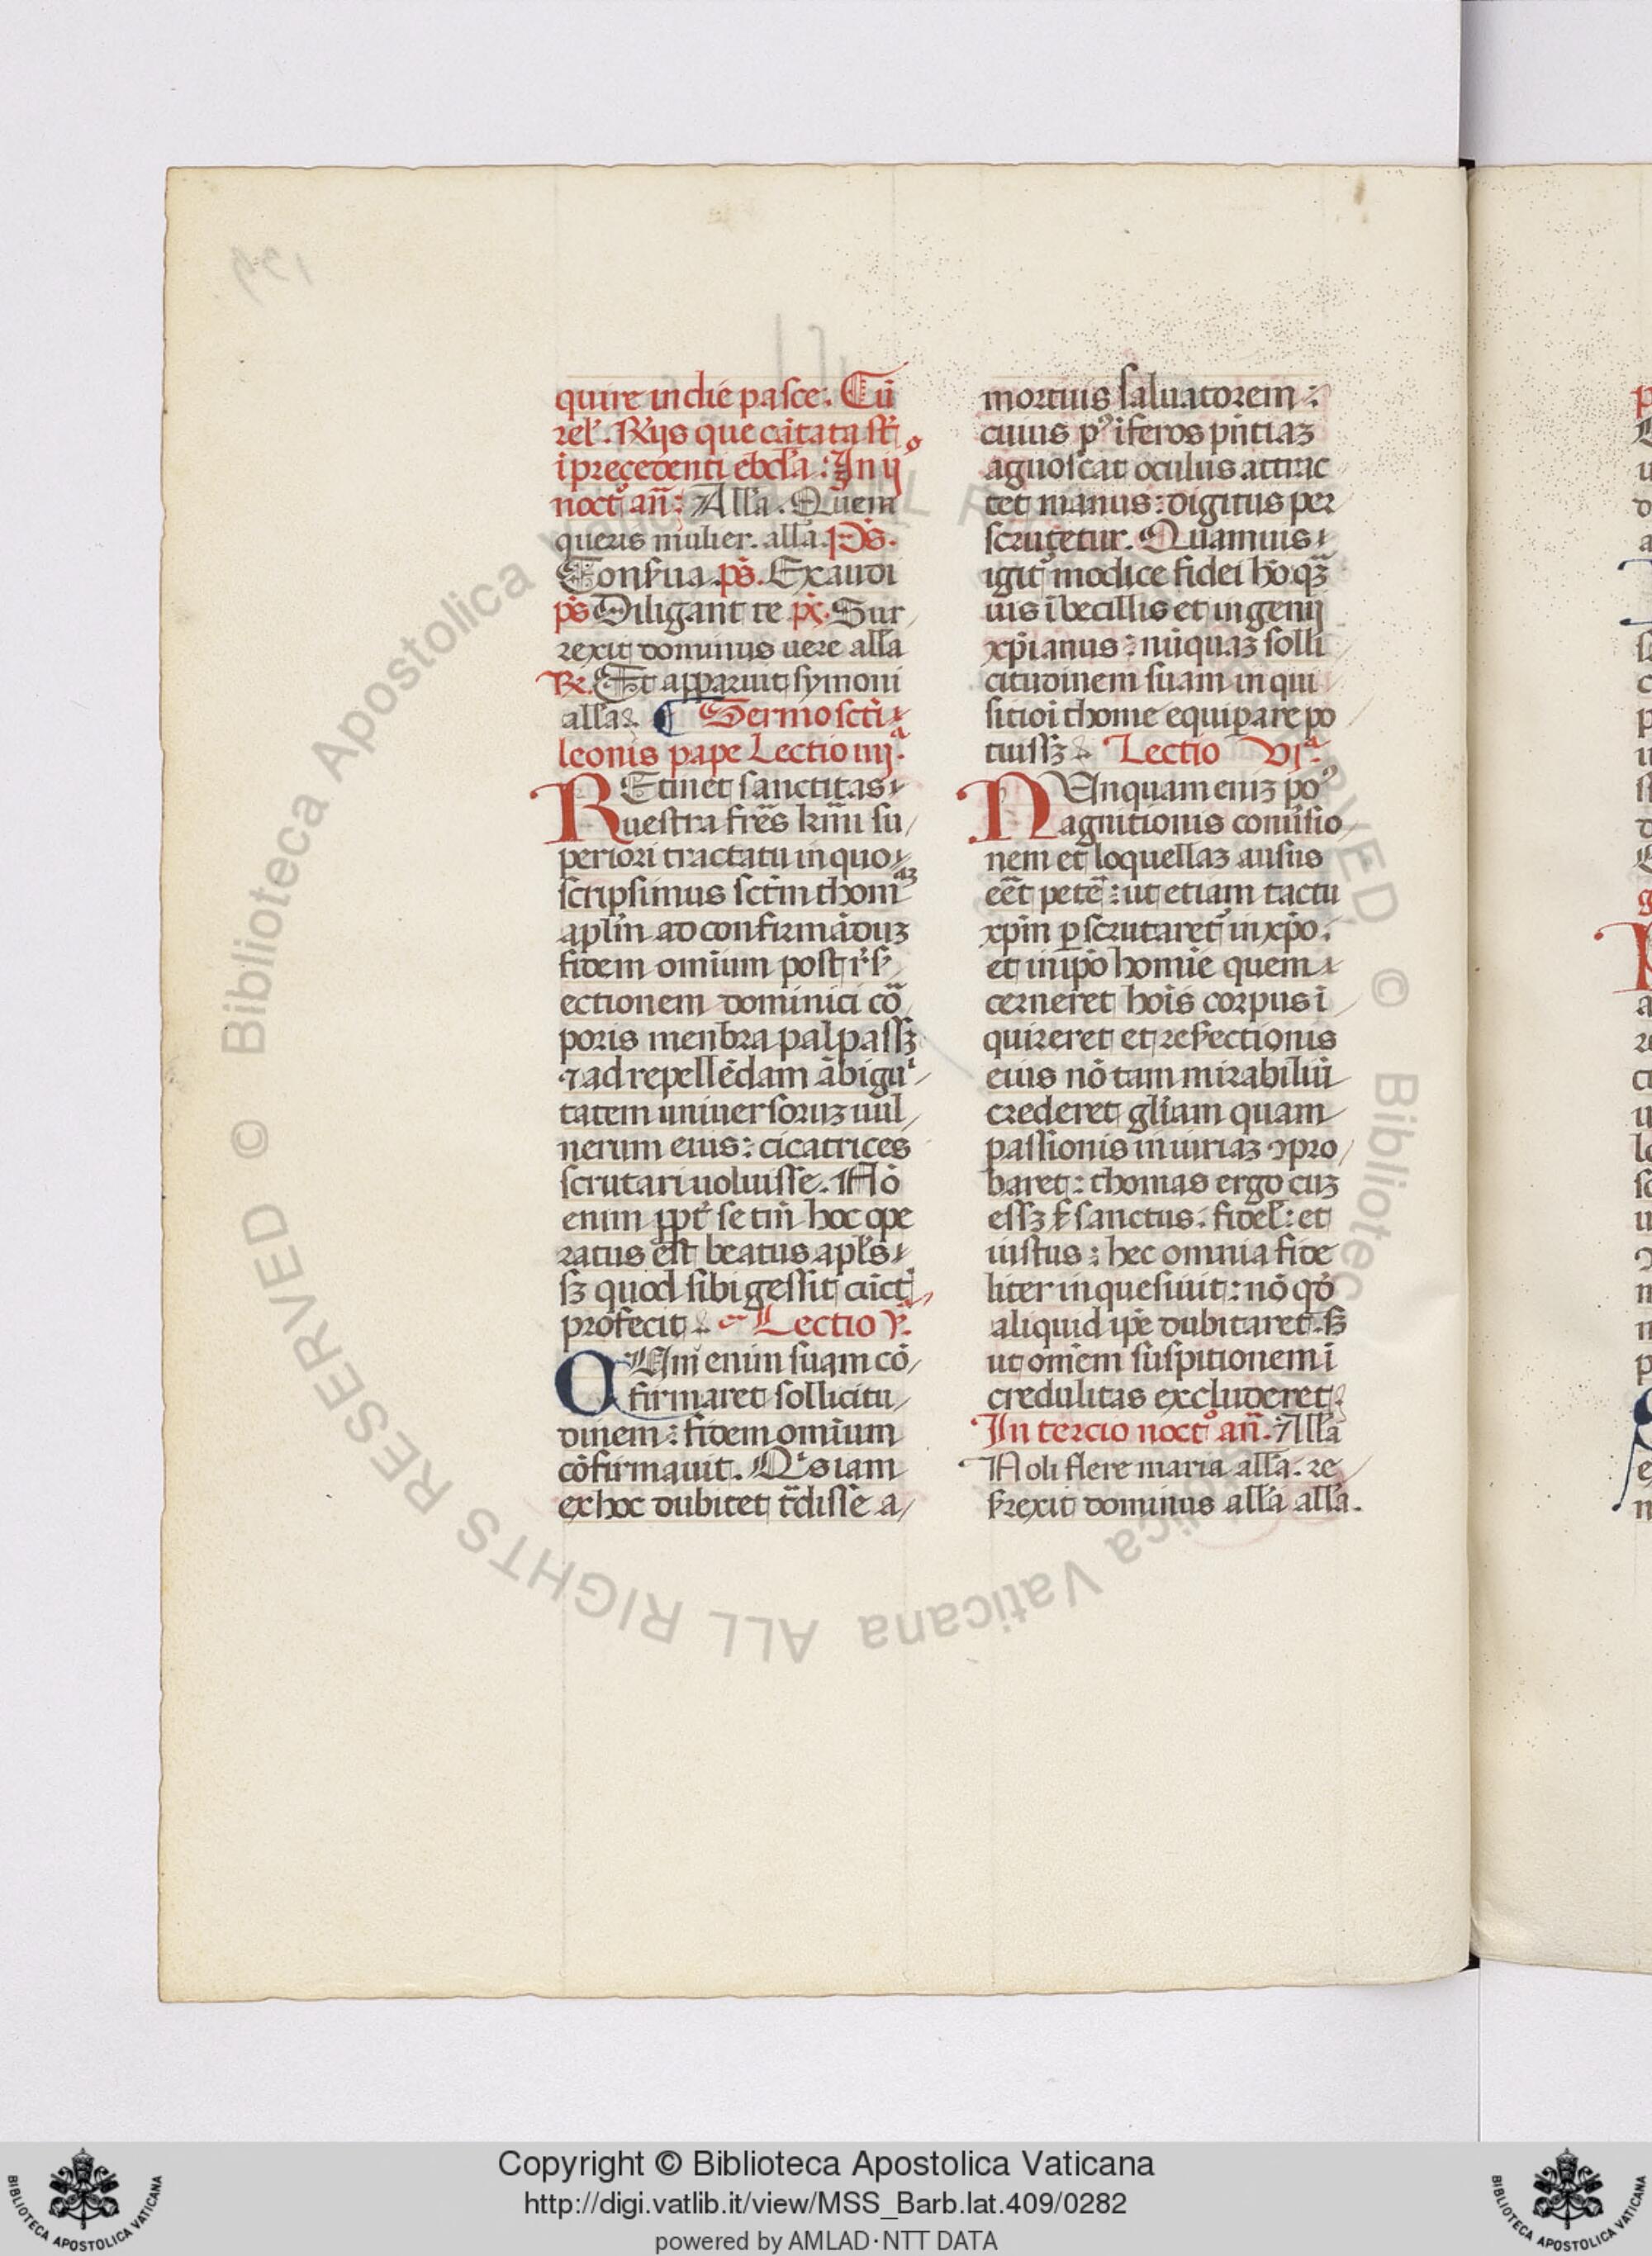 quire in die pasce. Cū
rel'. R'ijs que cātata sūt
ī precedenti ebd'a. In ijº
noct' an̄: All'a. Quem
queris mulier. alla. Ps.
Conserua. ps. Exaudi
ps Diligam te. Sur
rexit dominus uere all'a
R. Et apparuit symoni
all'a. Sermo scti
leonis pape Lectio iiijª.
REtinet sanctitas
uestra fr̄es kmi su
periori tractatu in quo
scripsimus sctm thomaz
aplm ad confirmāduz
fidem omium post
ectionem dominici cō
poris menbra palpassz
⁊ ad repellēdam ābigui
tatem uniuersoruz uul
nerum eius: cicatrices
scrutari uoluisse. Nō
enim ppt' se tm̄ hoc ope
ratus est beatus apl's
sz quod sibi gessit cūct'
profecit. Lectio v.
QUm enim suam cō
firmaret sollicitu
dinem: fidem omium
cōfirmauit. Qis iam
ex hoc dubitet t̄disse a
mortuis saluatorem:
cuius p' iferos pn̄tiaz
agnoscat oculus attrac
tet manus: digitus per
scrutetur. Quamuis
igit' modice fidei ho. qz
uis ībecillis et ingenij
xp̄ianus: nūquaz solli
citudinem suam in qui
sitioī thome equipare po
tuissz. Lectio VIª.
NEnquam eniz po'
agnitionis conuisio
nem et loquellaz ausus
eēt petē: ut etiam tactu
xp̄m pscrutaret' in xp̄o.
et in ip̄o homīe quem
cerneret hois corpus ī
quireret et resectionis
eius nō tam mirabiliū
crederet gl'iam quam
passionis iniuriaz ꝯpro
baret: thomas ergo cuz
essz sanctus: fidel': et
iustus: hec omnia fide
liter inquesiuit: nō qd
aliquid ipē dubitaret. s;
ut omēm suspitionem ī
credulitas excluderet.
In tercio noctº an̄. All'a
Noli flere maria all'a. re
srexit dominus all'a all'a.
Copyright © Biblioteca Apostolica Vaticana
http://digi.vatlib.it/view/MSS_Barb.lat.409/0282
powered by AMLAD·NTT DATA
BIBLIOTECA APOSTOLICA VATICANA
BIBLIOTECA APOSTOLICA VATICANA
© Biblioteca Apostolica Vaticana ALL RIGHTS RESERVED © Biblioteca Apostolica Vaticana ALL RIGHTS RESERVED